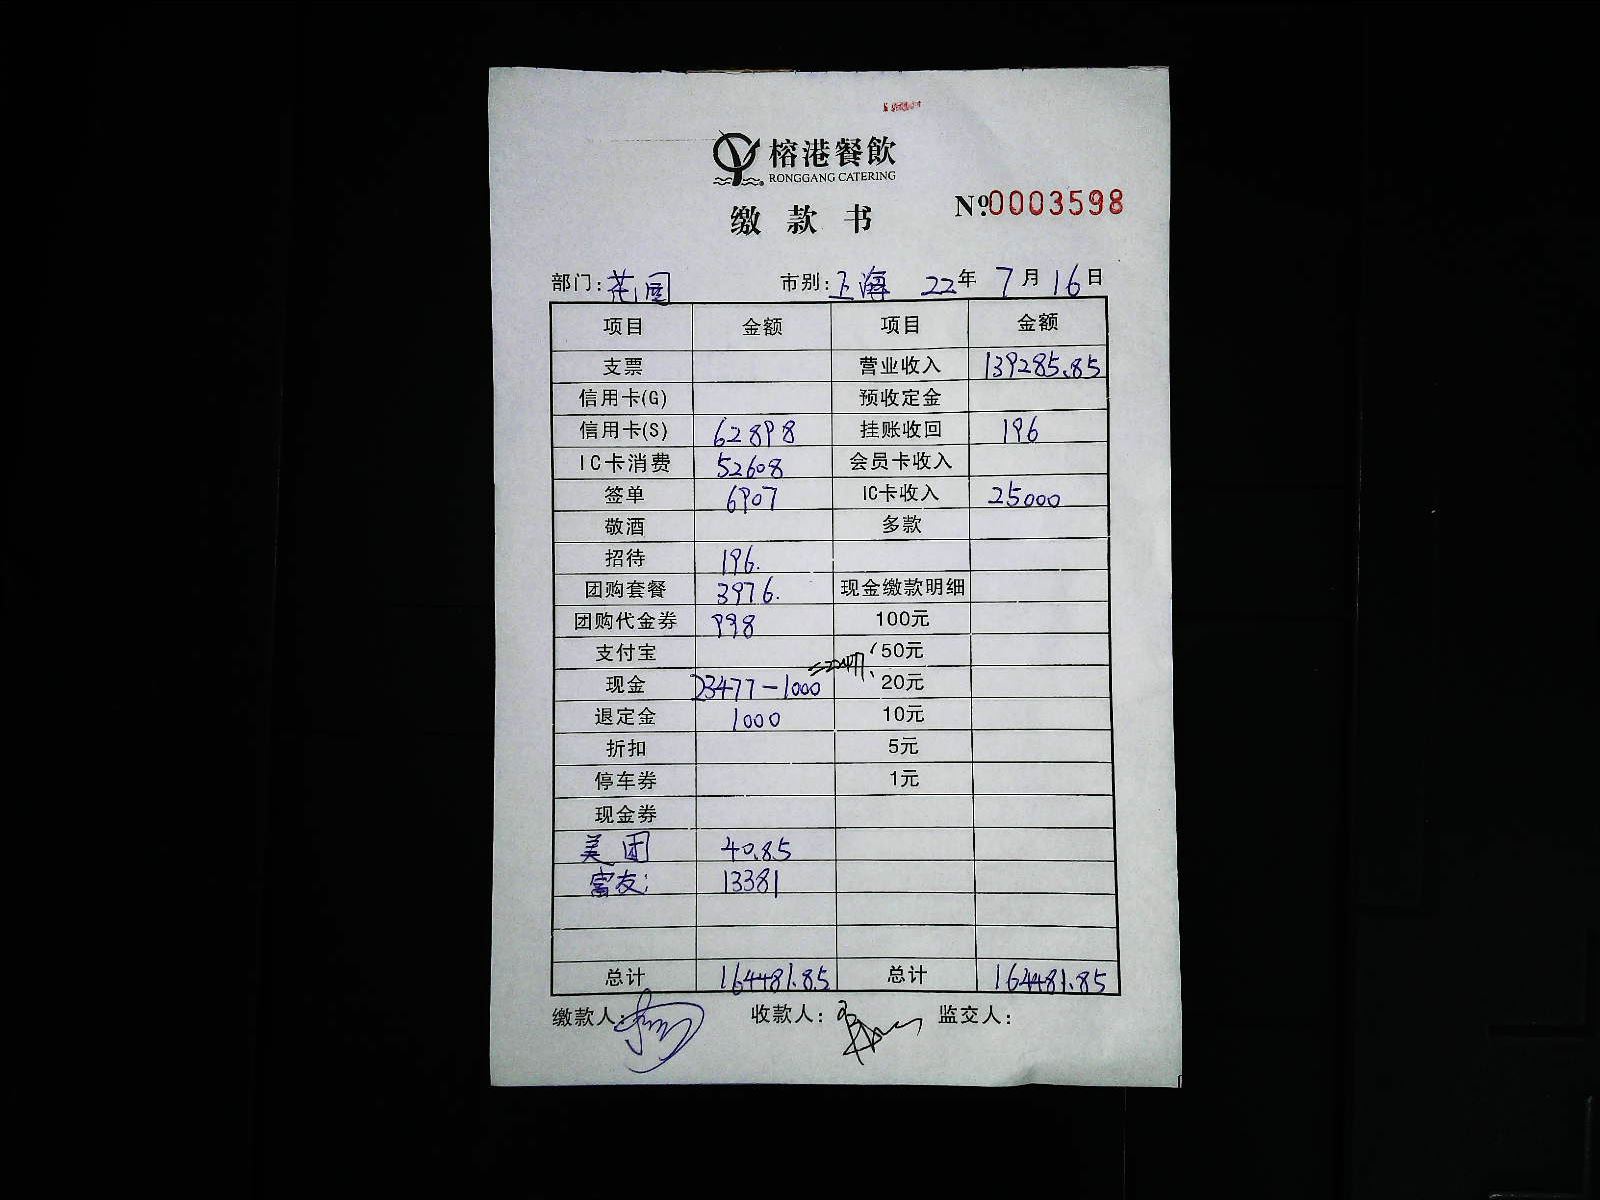 榕港餐飲
RONGGANG CATERING
缴款书 №0003598
部门:花园 市别:上海 22年7月16日
项目 金额 项目 金额
支票 营业收入 139285.85
信用卡(G) 预收定金
信用卡(S) 62898 挂账收回 196
IC卡消费 52608 会员卡收入
签单 6907 IC卡收入 25000
敬酒 多款
招待 196.
团购套餐 3976. 现金缴款明细
团购代金券 998 100元
支付宝 50元
=22477.
现金 23477-1000 20元
退定金 1000 10元
折扣 5元
停车券 1元
现金券
美团 40.85
富友: 13381
总计 164481.85 总计 164481.85
缴款人: 收款人: 监交人: